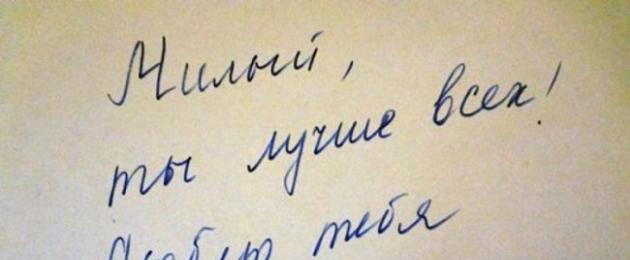 Милый,
ты лучше всех!
Люблю тебя